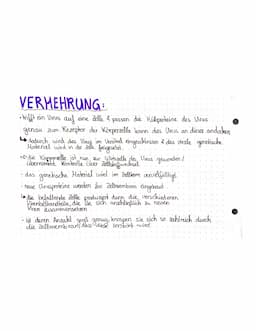 VERMEHRUNG:
• trifft ein Virus auf eine Zelle & passen die Hüllproteine des Virus
genau zum Rezeptor der Körperzelle kann das Virus an dieser andocken
↳ dadurch wird das Virus im Vesikel eingeschlossen & das virale genetische
Material wird in die Zelle freigesetzt
• die Körperzelle ist nun zur Wirtszelle des Virus geworden/
übernimmt Kontrolle über Zellstoffwechsel
• das genetische Material wird im Zellkern vervielfältigt
• neue Virusproteine werden ins Zellmembran eingebaut
↳ die befallende Zelle produziert dann die verschiedenen
Virenbestandteile, die sie sich nachträglich zu neuen
Viren zusammensetzen
• ist deren Anzahl groß genug, knospen sie sich so zahlreich durch
die Zellmembran, dass diese zerstört wird